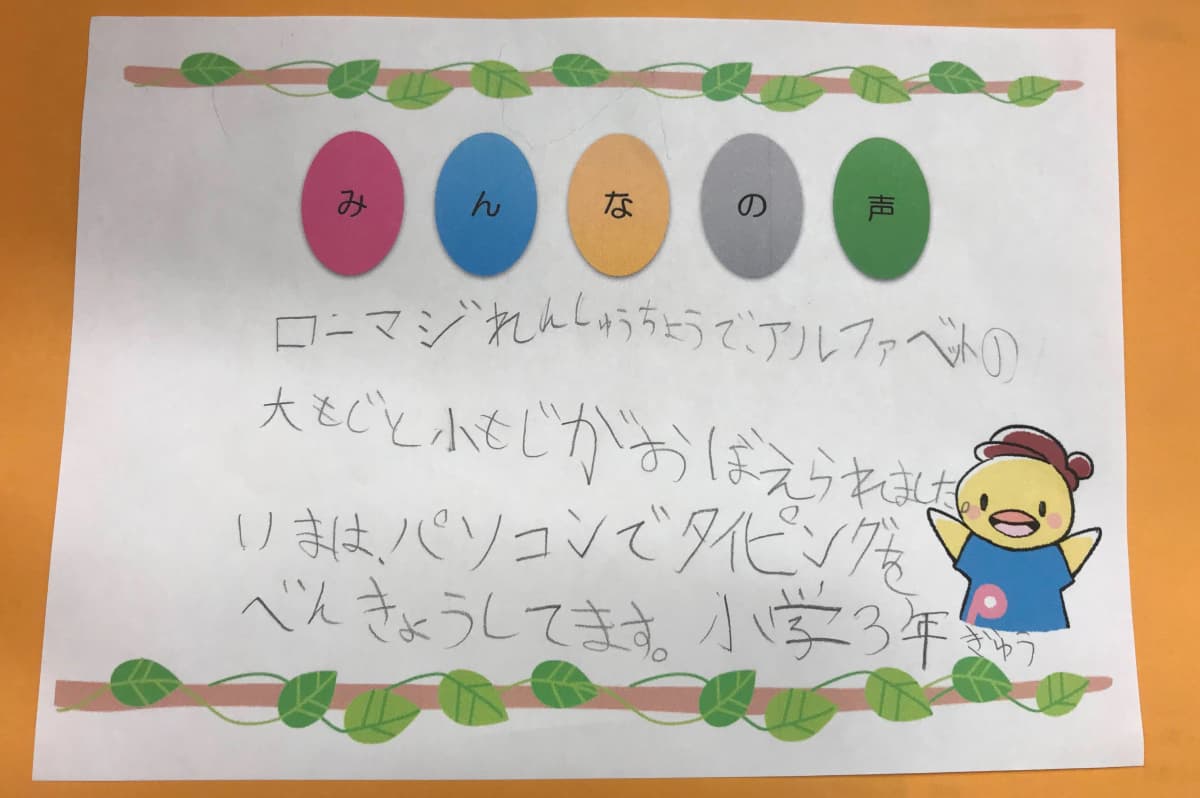 みんなの声
ローマジれんしゅうちょうで、アルファベットの
大もじと小もじがおぼえられました
いまは、パソコンでタイピングを
べんきょうしてます。小学3年ぎゅう
P